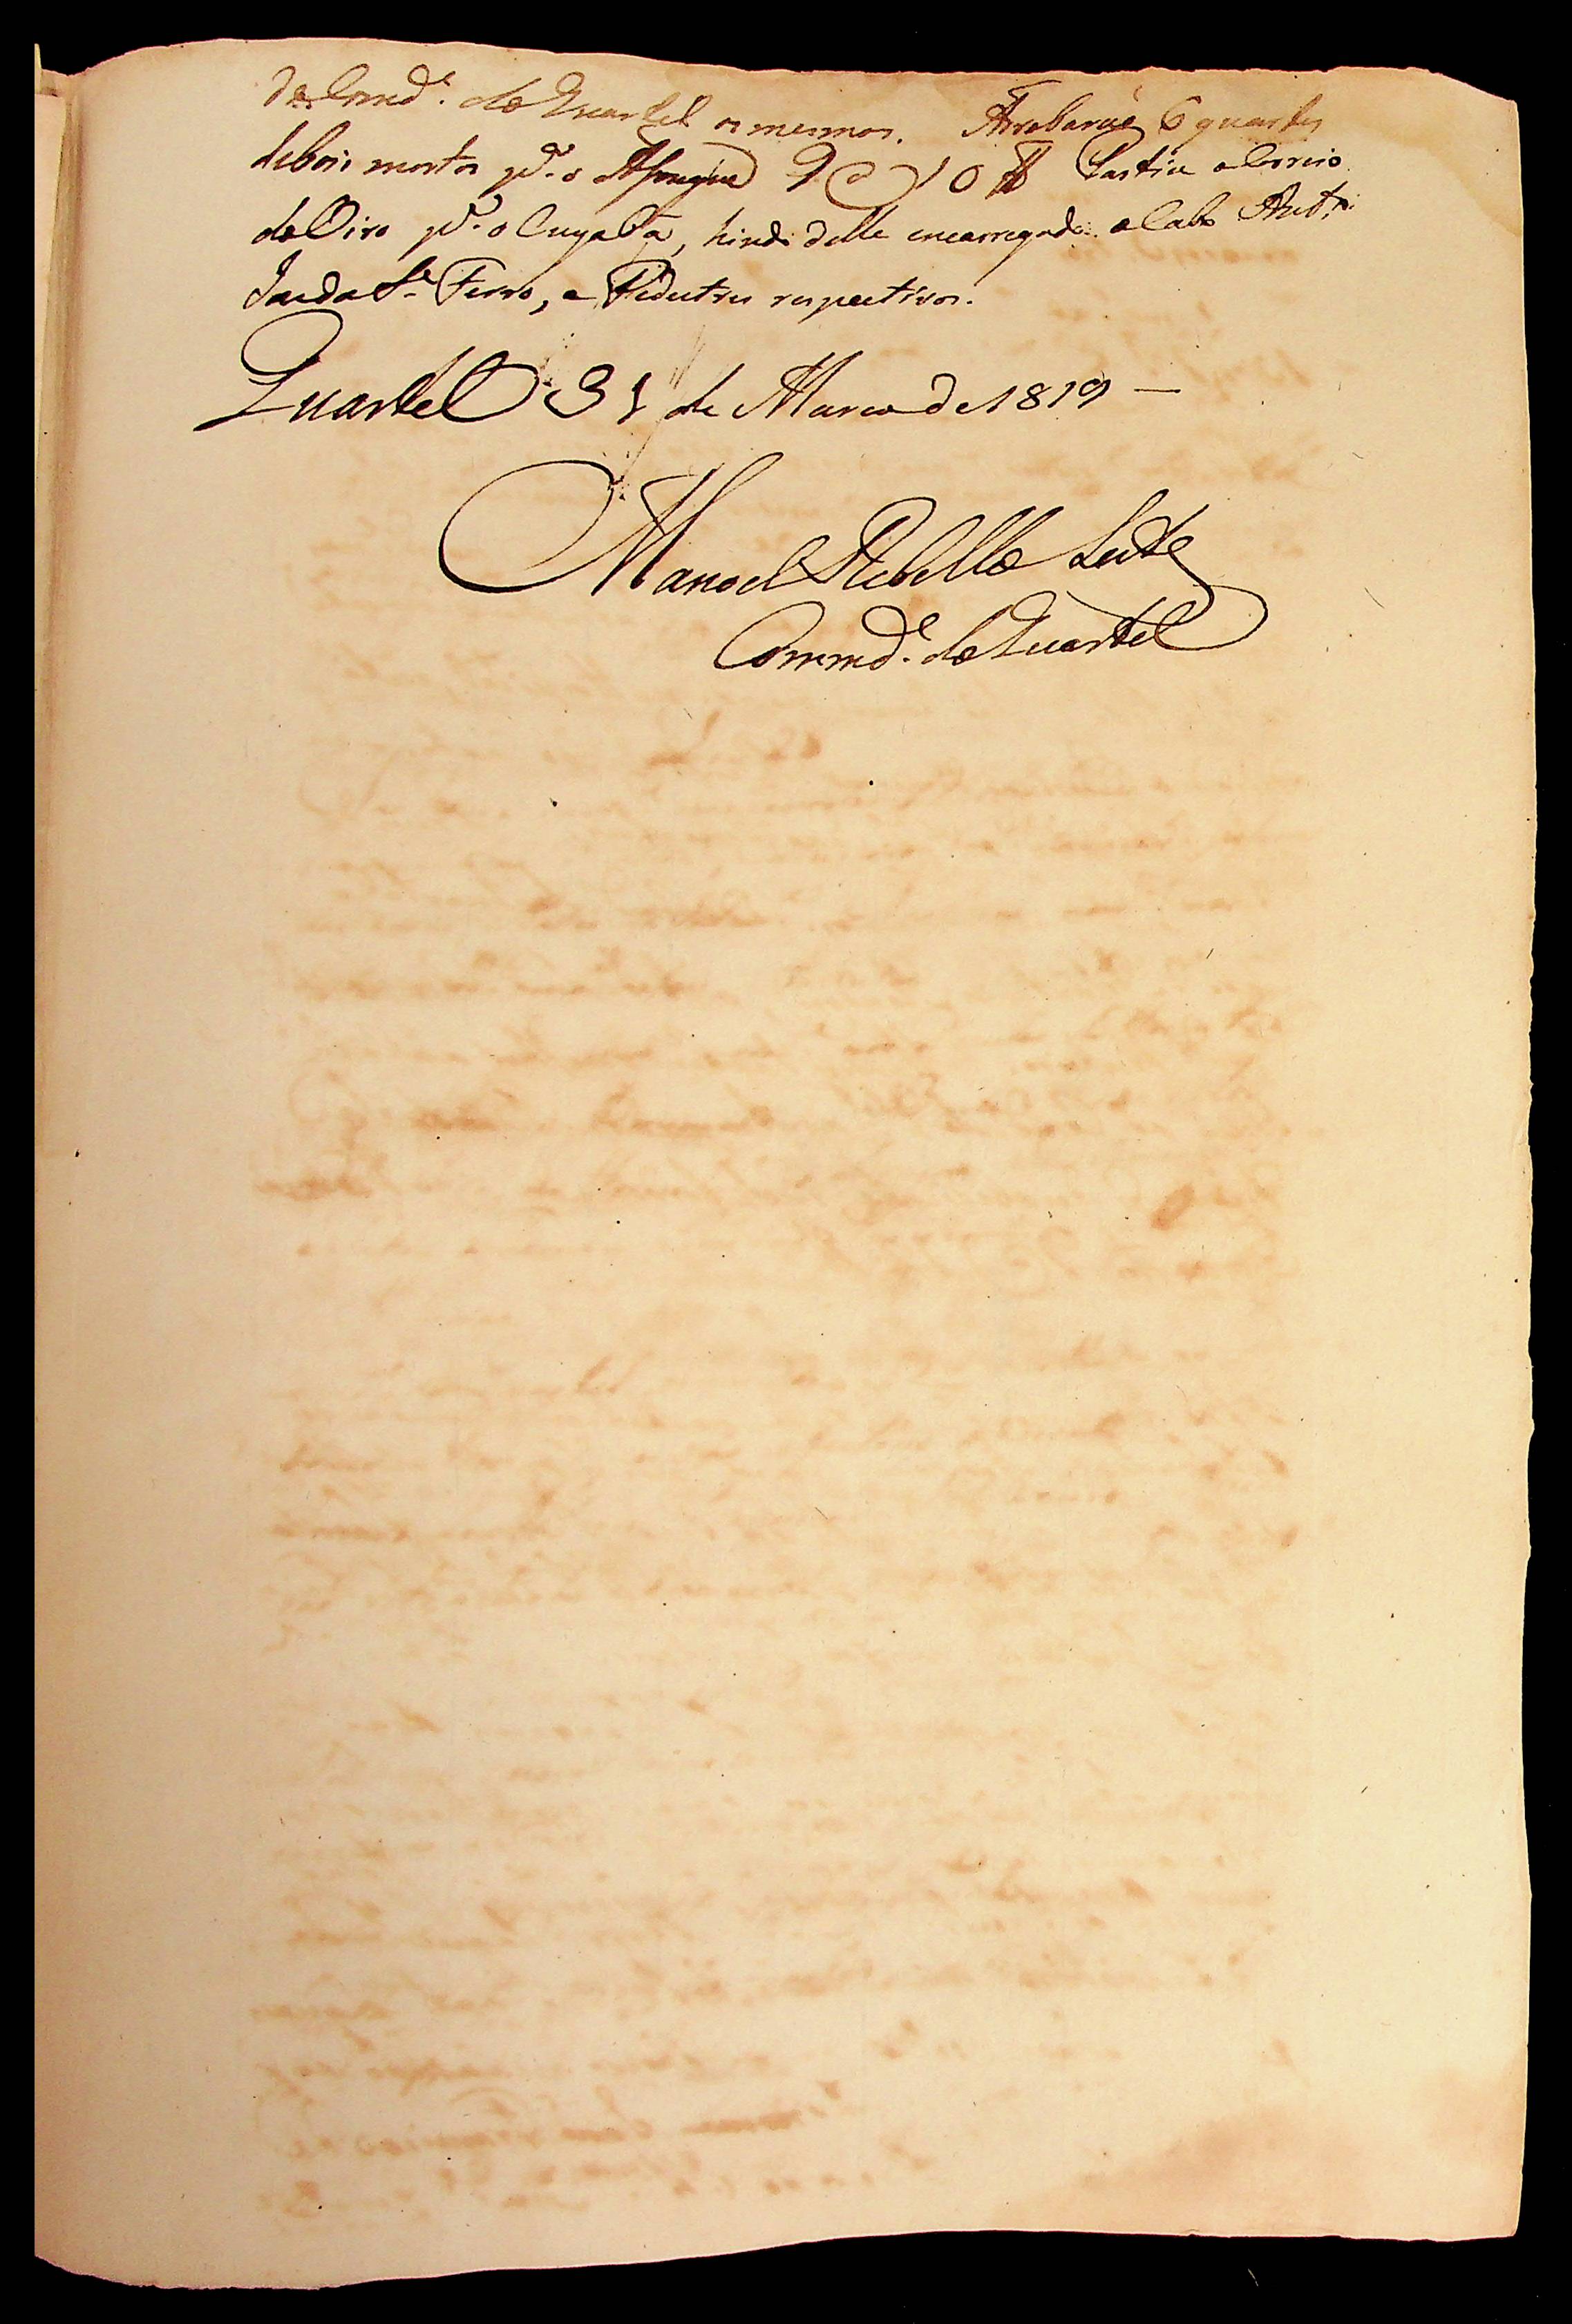 do Comd.e do Quartel os mesmos. 6 quartos
de bois mortos p.a o 9 @ 10 ℔ Partiu o Correio
do Oiro p.a o Cuyabá, hindo delle encarregado o Cabo Ant.o
Ferro, e Pedestres respectivos.
Quartel 31 de Março de 1819 —
Manoel Rebello Leite
Commd.e do Quartel